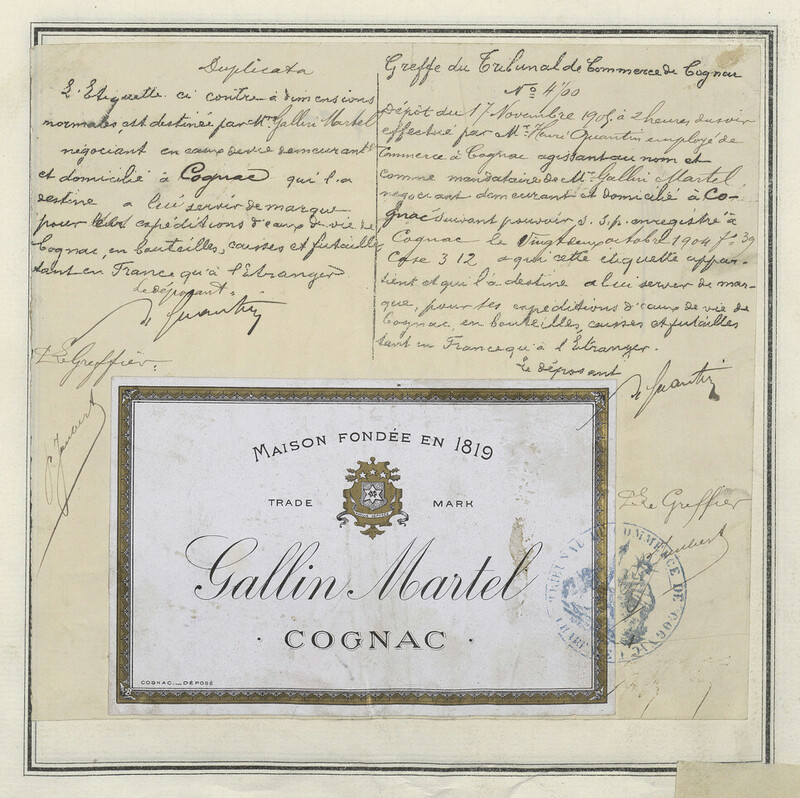 Duplicata
L'Etiquette ci contre à dimensions
normales, est destinée par Mr. Gallin Martel
négociant en eaux de vie demeurant
et domicilié à Cognac qui l'a
destine a lui servir de marque
pour ses expéditions d'eaux de vie de
Cognac, en bouteilles, caisses et futailles
tant en France qu'à l'Etranger
Le déposant.
H Quantin
Le Greffier:
Greffe du Tribunal de Commerce de Cognac
No 4100
Dépôt du 17 Novembre 1905 à 2 heures du soir
effectué par Mr. Henri Quantin employé de
Commerce à Cognac agissant au nom et
comme mandataire de Mr. Gallin Martel
négociant demeurant et domicilié à Co-
gnac suivant pouvoir s. s. p. enregistré à
Cognac le vingt deux octobre 1904 fo 39
Case 312 a qui cette etiquette appar-
tient et qui l'a destine a lui servir de mar-
que, pour ses expeditions d'eaux de vie de
Cognac, en bouteilles, caisses et futailles
tant en France qu'à l'Etranger.
Le déposant
H Quantin
Le Greffier
MAISON FONDÉE EN 1819
TRADE MARK
Gallin Martel
· COGNAC ·
COGNAC.__DÉPOSÉ
TRIBUNAL DE COMMERCE DE COGNAC